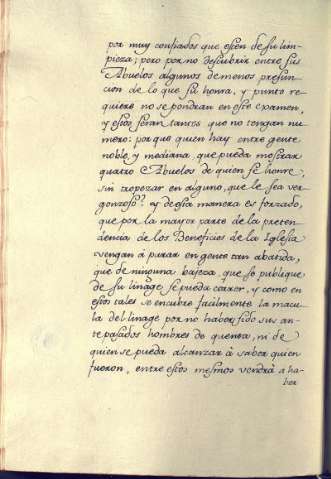 por muy confiados que estèn de su lim-
pieza; pero por no descubrir entre sus
Abuelos algunos de menos presun-
cion de lo que su honra, y punto re-
quiere no se pondran en este examen,
y estos seran tantos que no tengan nu-
mero: porque quien hay entre gente
noble, y mediana, que pueda mostrar
quatro Abuelos de quien se honre,
sin tropezar en alguno, que le sea ver-
gonzoso? y desta manera es forzado,
que por la mayor parte de la preten-
dencia de los Beneficios de la Iglesia
vengan a parar en gente tan abatida,
que de ninguna bageza, que se publique
de su linage se pueda correr, y como en
estos tales se encubre facilmente la macu-
la del linage por no haber sido sus an-
tepasados hombres de quenta, ni de
quien se pueda alcanzar à saber quien
fueron, entre estos mesmos vendrà a ha-
ber